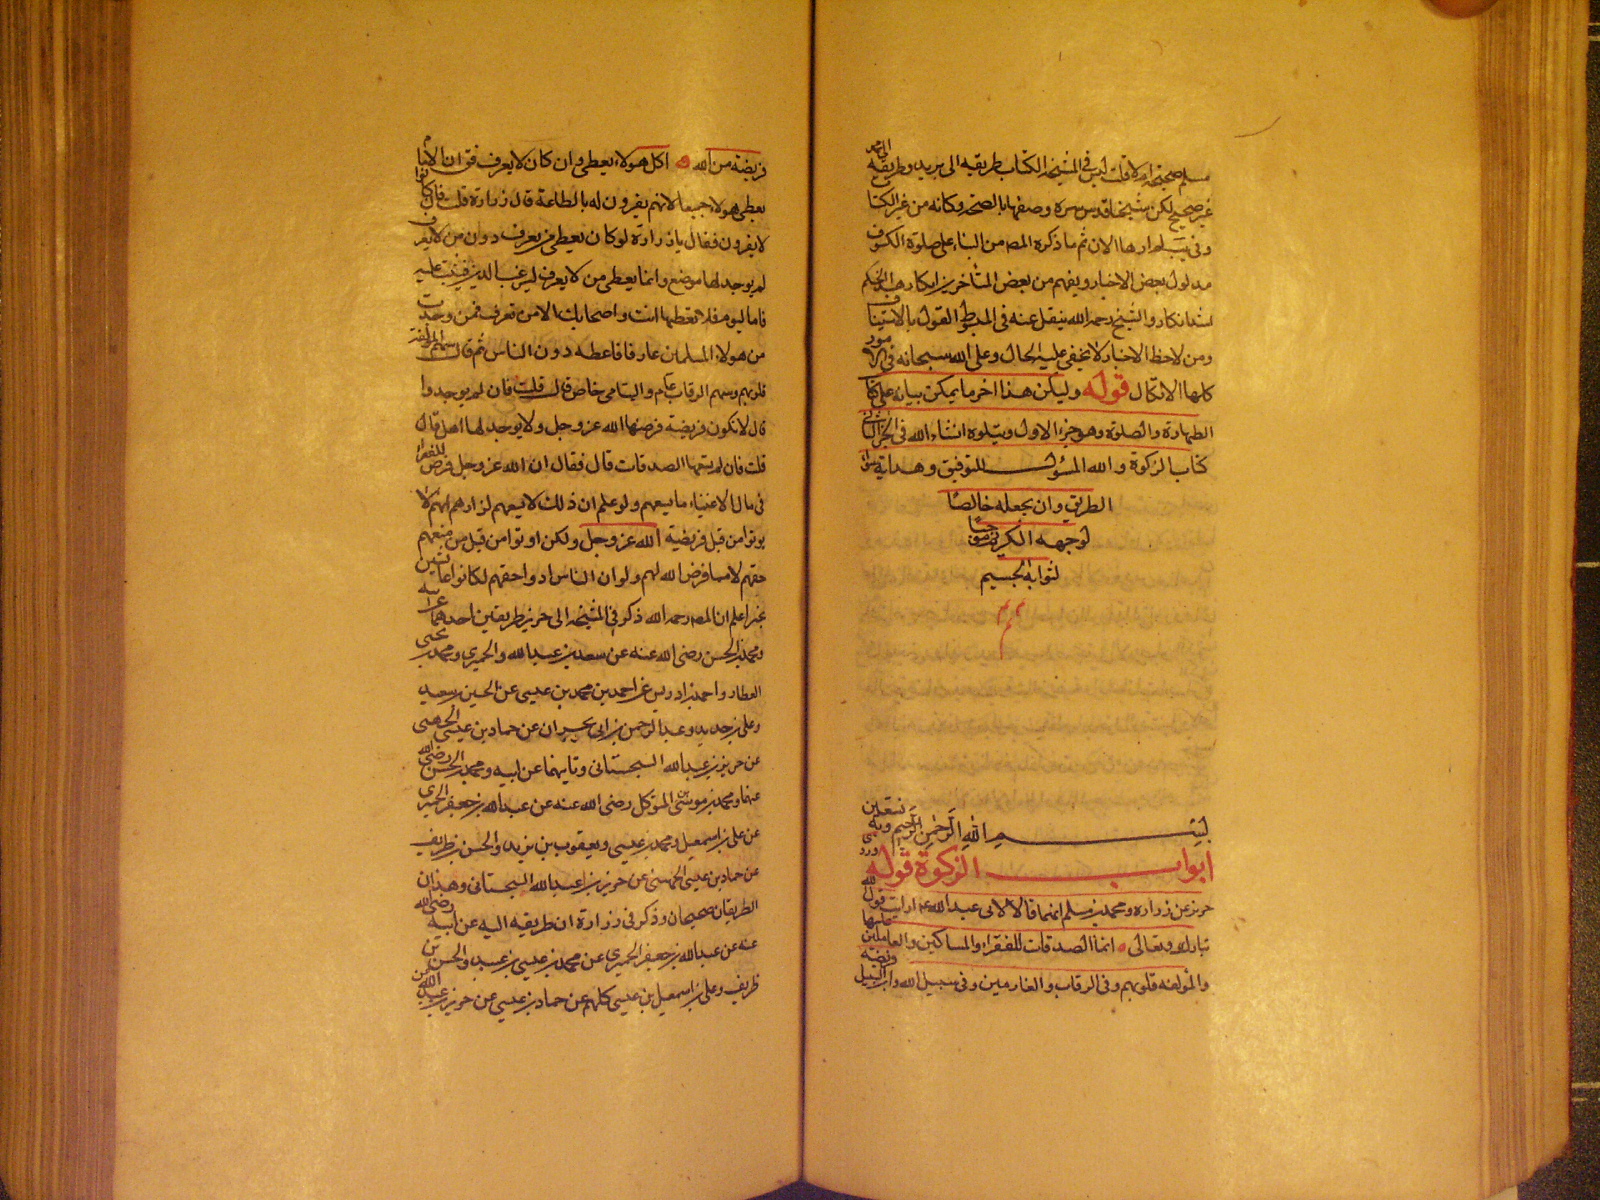 مسلم صحيحة ام لا قلت ليس في المشيخة الكتاب طريقه الى بريد وطريقه الى محمد
غير صحيح لكن شيخنا قدس سره وصفها بالصحة وكانه من غير الكتاب
ثم ما ذكره المص من البناء على صلوة الكسوف
مدلول بعض الاخبار ويفهم من بعض المتأخرين انكار هذا الحكم
اشد انكار والشيخ رحمه الله ينقل عنه في المبسوط القول بالاستيناف
ومن لاحظ الاخبار لا يخفى عليه الحال وعلى الله سبحانه في الامور
كلها الاتكال قوله وليكن هذا اخر ما يمكن بيانه على كتاب
الطهارة والصلوة وهو جزء الاول ويتلوه انشاء الله في الجزء الثاني
كتاب الزكوة والله المسؤل للتوفيق وهداية سواء
الطريق وان يجعله خالصا
لوجهه الكريم موجبا
لثوابه الجسيم
بسم الله الرحمن الرحيم وبه نستعين
ابواب الزكوة قوله
حريز عن زرارة ومحمد بن مسلم انهما قالا لابى عبد الله ع ارايت قول الله
تبارك وتعالى انما الصدقات للفقراء والمساكين والعاملين عليها
والمؤلفة قلوبهم وفي الرقاب والغارمين وفي سبيل الله وابن السبيل فريضة
فريضة من الله اكل هولاء يعطى وان كان لا يعرف فق ان الامام
يعطى هولاء جميعا لانهم يقرون له بالطاعة قال زرارة قلت فان كانوا
لا يقرون فقال يا زرارة لو كان يعطى من يعرف دون من لا يعرف
لم يوجد لها موضع وانما يعطى من لا يعرف ليرغب الدين فيثبت عليه
فاما اليوم فلا تعطها انت واصحابك الا من تعرف فمن وجدت
من هولاء المسلمين عارفا فاعطه دون الناس ثم قال سهم المؤلفة
قلوبهم وسهم الرقاب عام والباقى خاص قال قلت فان لم يوجدوا
قال لا تكون فريضة فرضها الله عز وجل ولا يوجد لها اهل قال
قلت فان لم يسعهم الصدقات قال فقال ان الله عز وجل فرض للفقراء
في مال الاغنياء ما يسعهم ولو علم ان ذلك لا يسعهم لزادهم انهم لا
يوتوا من قبل فريضة الله عز وجل ولكن اوتوا من قبل من منعهم
حقهم لا مما فرض الله لهم ولو ان الناس ادوا حقهم لكانوا عائشين
بخير اعلم ان المص رحمه الله ذكر في المشيخة الى حريز طريقين احدهما عن ابيه
ومحمد بن الحسن رضى الله عنه عن سعد بن عبد الله والحميرى ومحمد بن يحيى
العطار واحمد بن ادريس عن احمد بن محمد بن عيسى عن الحسين بن سعيد
وعلى بن حديد وعبد الرحمن بن ابى نجران عن حماد بن عيسى الجهنى
عن حريز بن عبد الله السجستانى وثانيهما عن ابيه ومحمد بن الحسن رضى الله
عنهما ومحمد بن موسى بن المتوكل رضى الله عنه عن عبد الله بن جعفر الحميرى
عن على بن اسمعيل ومحمد بن عيسى ويعقوب بن يزيد والحسن بن ظريف
عن حماد بن عيسى الجهنى عن حريز بن عبد الله السجستانى وهذان
الطريقان صحيحان وذكر في زرارة ان طريقه اليه عن ابيه رضى الله
عنه عن عبد الله بن جعفر الحميرى عن محمد بن عيسى بن عبيد والحسن بن
ظريف وعلى بن اسمعيل بن عيسى كلهم عن حماد بن عيسى عن حريز بن عبد الله عن